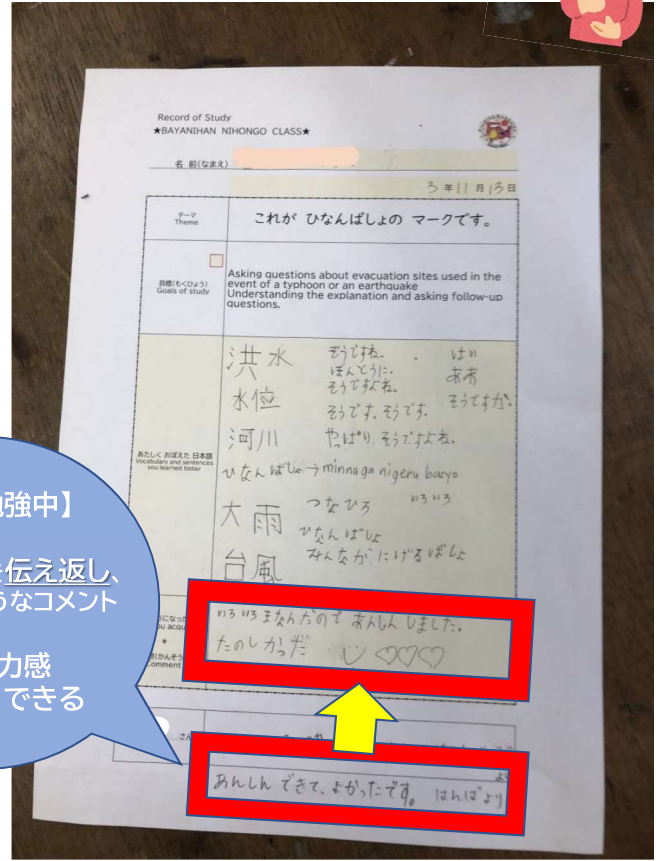 Record of Study
★BAYANIHAN NIHONGO CLASS★
名 前(なまえ)
3 年 11 月 13 日
テーマ
Theme
これが ひなんばしょの マークです。
目標(もくひょう)
Goals of study
Asking questions about evacuation sites used in the
event of a typhoon or an earthquake
Understanding the explanation and asking follow-up
questions.
あたらしく おぼえた 日本語
Vocabulary and sentences
you learned today
洪水
そうですね。
はい
ほんとうに。
ああ
水位
そうですよね。
そうですか。
そうです。そうです。
河川
やっぱり、そうですよね。
ひなんばしょ→minna ga nigeru basyo
大雨
つなひろ
いろいろ
ひなんばしょ
台風
みんなが にげるばしょ
強中】
を伝え返し、
うなコメント
力感
できる
いろいろまなんだので あんしんしました。
たのしかっだ
Comment
さん
より
あんしん できて、よかったです。